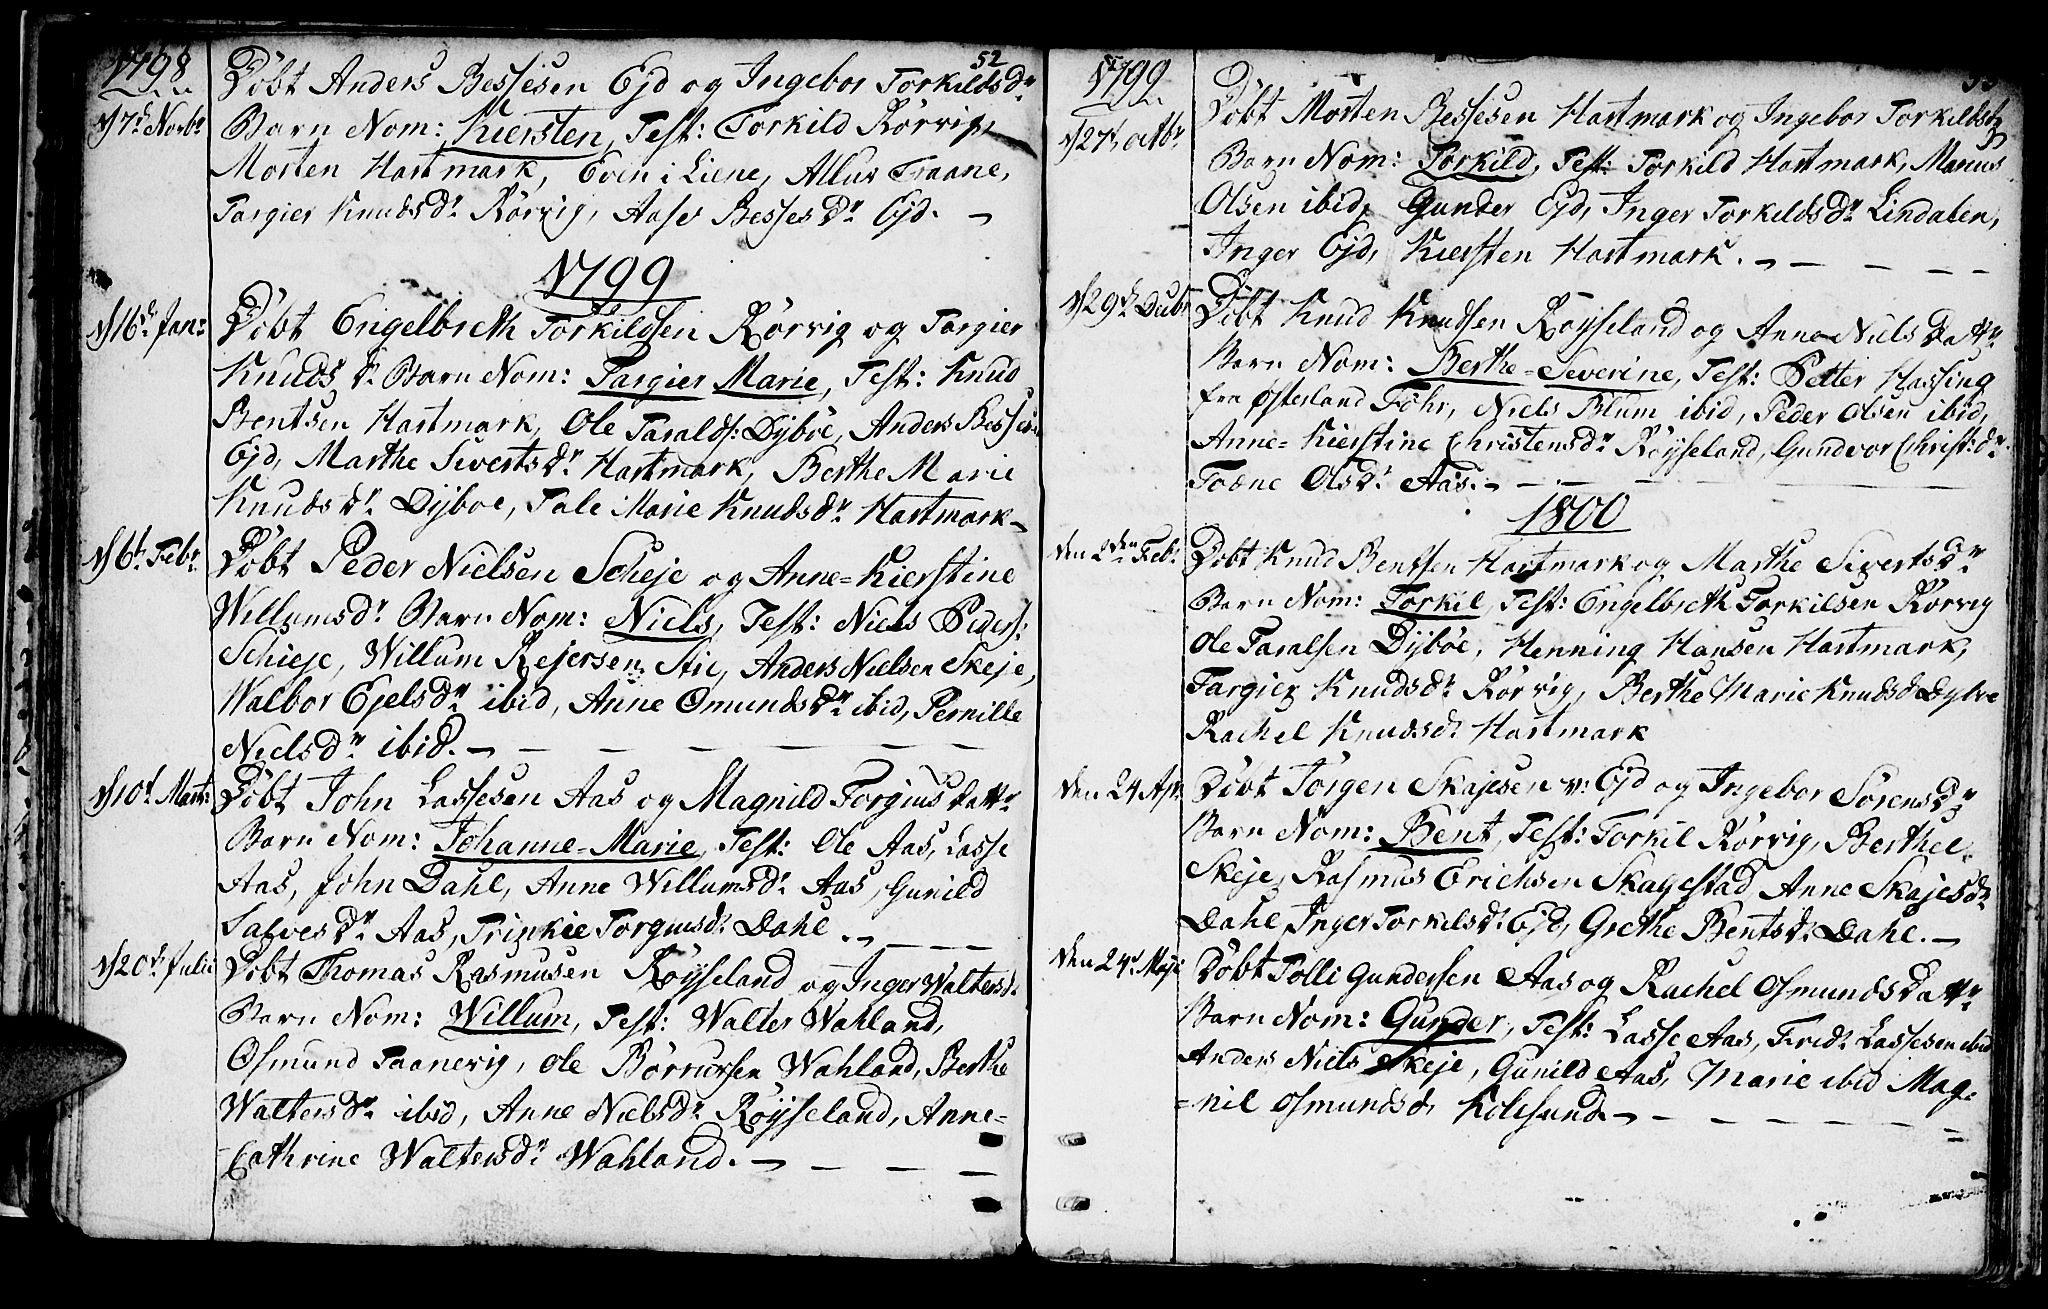 1798
52
d 7d Novbr
Döbt Anders Bessesen Ejd og Ingebor Torkildsdr
Barn Nom: Kiersten, Test: Torkild Rörvig,
Morten Hartmark, Even i Liene, Traane,
Targier Knudsdr Rörvig, Aase Bessesdr Ejd. —
1799
d 16d Janr
Döbt Engelbreth Torkildsen Rörvig og Targier
Knudsdr Barn Nom: Targier Marie, Test: Knud
Bentsen Hartmark, Ole Taralds: Dyböe, Anders Besses:
Ejd, Marthe Sivertsdr Hartmark, Berthe Marie
Knudsdr Dyboe, Tale Marie Knudsdr Hartmark —
d 6t Febr
Döbt Peder Nielsen Scheje og Anne=Kierstine
Willumsdr Barn Nom: Niels, Test: Niels Peders:
Schieje, Willum Rejersen Stie, Anders Nielsen Skeje,
Walbor Ejelsdr ibid, Anne Omundsdr ibid, Pernille
Nielsdr ibid. —
d 10d Marti
Döbt John Lassesen Aas og Magnild Torgiusdattr
Barn Nom: Johanne=Marie, Test: Ole Aas, Lasse
Aas, John Dahl, Anne Willumsdr Aas, Gunild
Salvesdr Aas, Trinkie Torgiusdr Dahl. —
d 20d Julii
Döbt Thomas Rasmusen Röyseland og Inger Waltersd.
Barn Nom: Willum, Test: Walter Wahland,
Osmund Taanevig, Ole Börrursen Wahland, Berthe
Waltersdr ibid, Anne Nielsdr Röyseland, Anne=
=Cathrine Waltersdr Wahland. —
1799
d 27d octbr
Döbt Morten Bessesen Hartmark og Ingebor Torkildsd
Barn Nom: Torkild, Test: Torkild Hartmark, Marius
Olsen ibid, Gunder Ejd, Inger Torkildsdr Lindalen,
Inger Ejd, Kiersten Hartmark. —
d 29d Decbr
Döbt Knud Knudsen Röyseland og Anne Niels Dattr
Barn Nom: Berthe=Severine, Test: Petter Hassing
fra Österland Föhr, Niels Blum ibid, Peder Olsen ibid,
Anne=Kierstine Christensdr Röyseland, Gundvor Christ:dr
Toene Olsdr Aas. —
1800
den 2den Febr
Döbt Knud Bentsen Hartmark og Marthe Sivertsdr
Barn Nom: Torkil, Test: Engelbreth Torkilsen Rörvig
Ole Taralsen Dyböe, Henning Hansen Hartmark,
Targier Knudsdr Rörvig, Berthe Marie Knudsd Dyboe
Rachel Knudsdr Hartmark
den 24 Apr:
Döbt Jörgen Skajesen v: Ejd og Ingebor Sörensdr
Barn Nom: Bent, Test: Torkil Rörvig, Berthel
Skeje, Rasmus Erichsen Skagestad Anne Skajesdr
Dahl, Inger Torkilsdr Ejd, Grethe Bentsdr Dahl. —
den 24d Maji
Döbt Tolli Gundersen Aas og Rachel Osmundsdattr
Barn Nom: Gunder, Test: Lasse Aas, Fredr Lassesen ibid
Anders Niels Skeje, Gunild Aas, Marie ibid Mag=
=nil Osmundsd. Kolesund. —